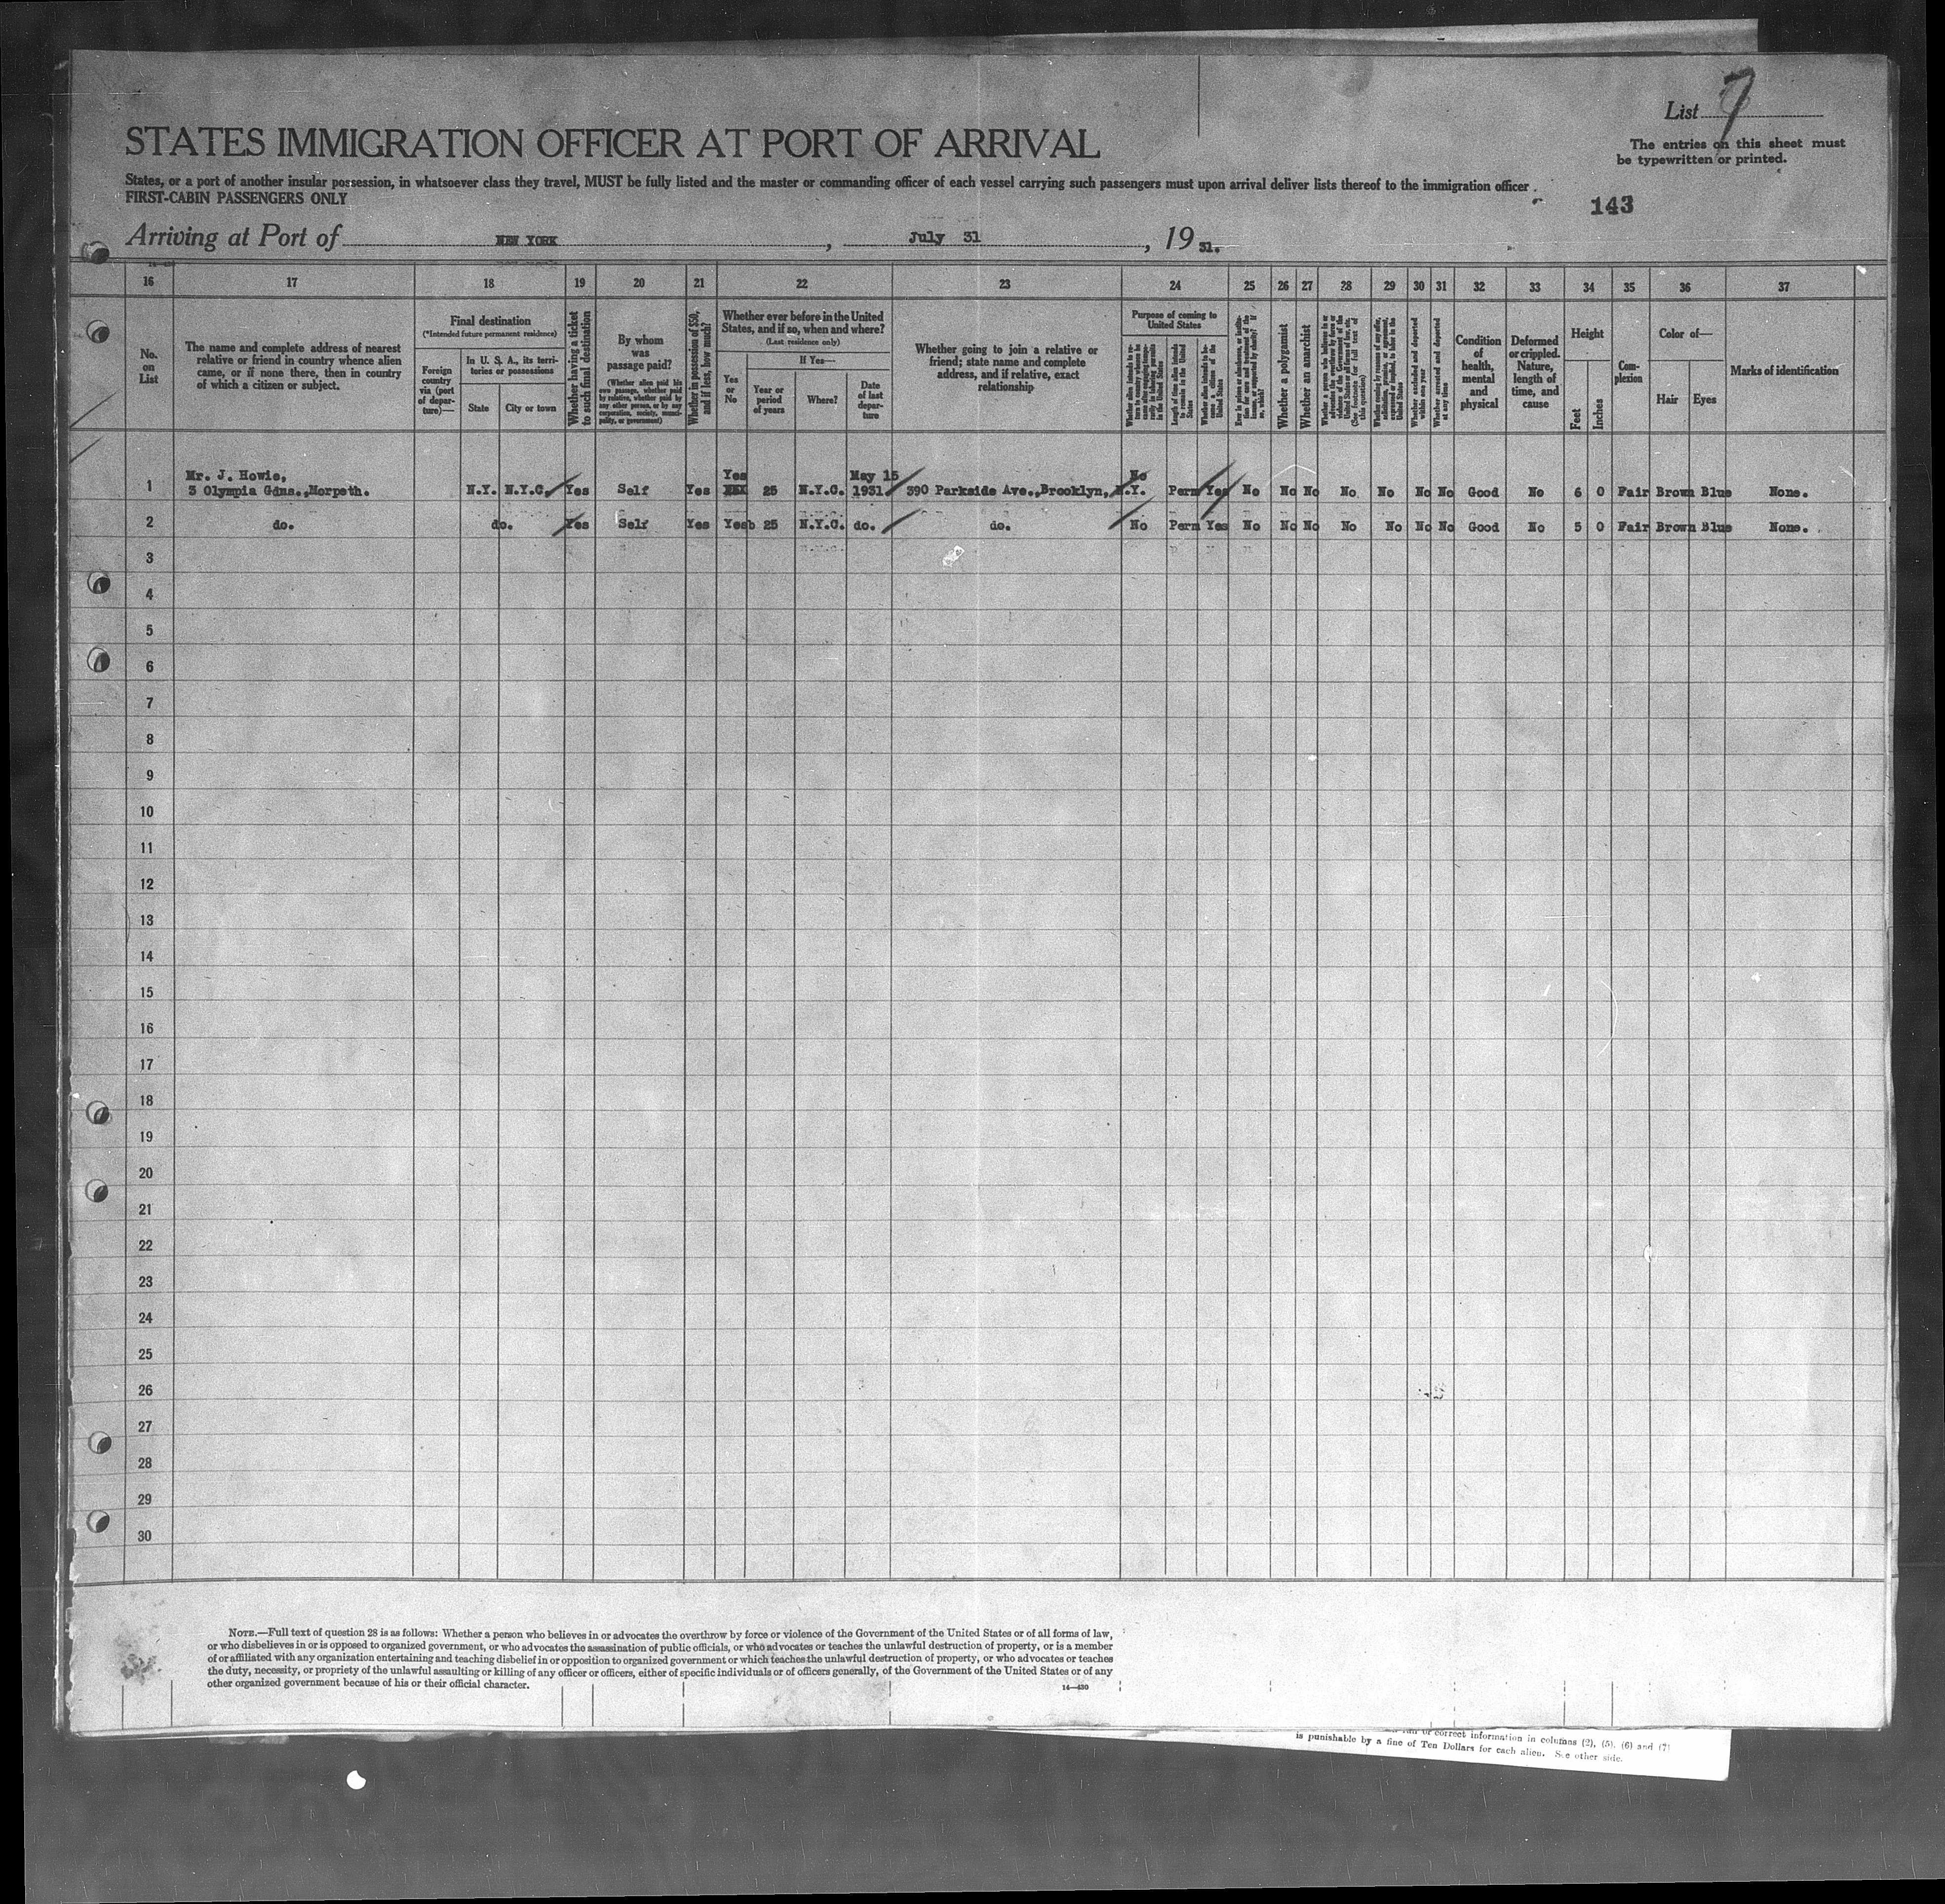 List 7
The entries on this sheet must
be typewritten or printed.
STATES IMMIGRATION OFFICER AT PORT OF ARRIVAL
States, or a port of another insular possession, in whatsoever class they travel, MUST be fully listed and the master or commanding officer of each vessel carrying such passengers must upon arrival deliver lists thereof to the immigration officer
FIRST-CABIN PASSENGERS ONLY
143
Arriving at Port of NEW YORK, July 31, 19 31.
16 17 18 19 20 21 22 23 24 25 26 27 28 29 30 31 32 33 34 35 36 37
No.
on
List
The name and complete address of nearest
relative or friend in country whence alien
came, or if none there, then in country
of which a citizen or subject.
Final destination
(*Intended future permanent residence)
Foreign
country
via (port
of depar-
ture)—
In U. S. A., its terri-
tories or possessions
State
City or town
Whether having a ticket
to such final destination
By whom
was
passage paid?
(Whether alien paid his
own passage, whether paid
by relative, whether paid by
any other person, or by any
corporation, society, munici-
pality, or government)
Whether in possession of $50,
and if less, how much?
Whether ever before in the United
States, and if so, when and where?
(Last residence only)
Yes
or
No
If Yes—
Year or
period
of years
Where?
Date
of last
depar-
ture
Whether going to join a relative or
friend; state name and complete
address, and if relative, exact
relationship
Purpose of coming to
United States
Length of time alien intends
to remain in the United
States
Whether alien intends to be-
come a citizen of the
United States
Whether a polygamist
Whether an anarchist
Whether arrested and deported
at any time
Condition
of
health,
mental
and
physical
Deformed
or crippled.
Nature,
length of
time, and
cause
Height
Feet
Inches
Com-
plexion
Color of—
Hair
Eyes
Marks of identification
1 Mr. J. Howie, Yes May 15 No
3 Olympia Gdns., Morpeth. N.Y. N.Y.C. Yes Self Yes 25 N.Y.C. 1931 390 Parkside Ave., Brooklyn, N.Y. Perm Yes No No No No No No No Good No 6 0 Fair Brown Blue None.
2 do. do. Yes Self Yes Yesb 25 N.Y.C. do. do. No Perm Yes No No No No No No No Good No 5 0 Fair Brown Blue None.
3
4
5
6
7
8
9
10
11
12
13
14
15
16
17
18
19
20
21
22
23
24
25
26
27
28
29
30
NOTE.—Full text of question 28 is as follows: Whether a person who believes in or advocates the overthrow by force or violence of the Government of the United States or of all forms of law,
or who disbelieves in or is opposed to organized government, or who advocates the assassination of public officials, or who advocates or teaches the unlawful destruction of property, or is a member
of or affiliated with any organization entertaining and teaching disbelief in or opposition to organized government or which teaches the unlawful destruction of property, or who advocates or teaches
the duty, necessity, or propriety of the unlawful assaulting or killing of any officer or officers, either of specific individuals or of officers generally, of the Government of the United States or of any
other organized government because of his or their official character.
14—430
or correct information in columns (2), (5), (6) and (7)
is punishable by a fine of Ten Dollars for each alien. See other side.